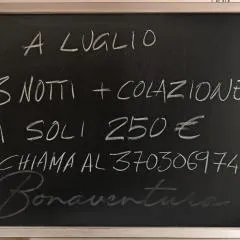 A LUGLIO
3 NOTTI + COLAZIONE
A SOLI 250 €
CHIAMA AL 370306974
Bonaventura